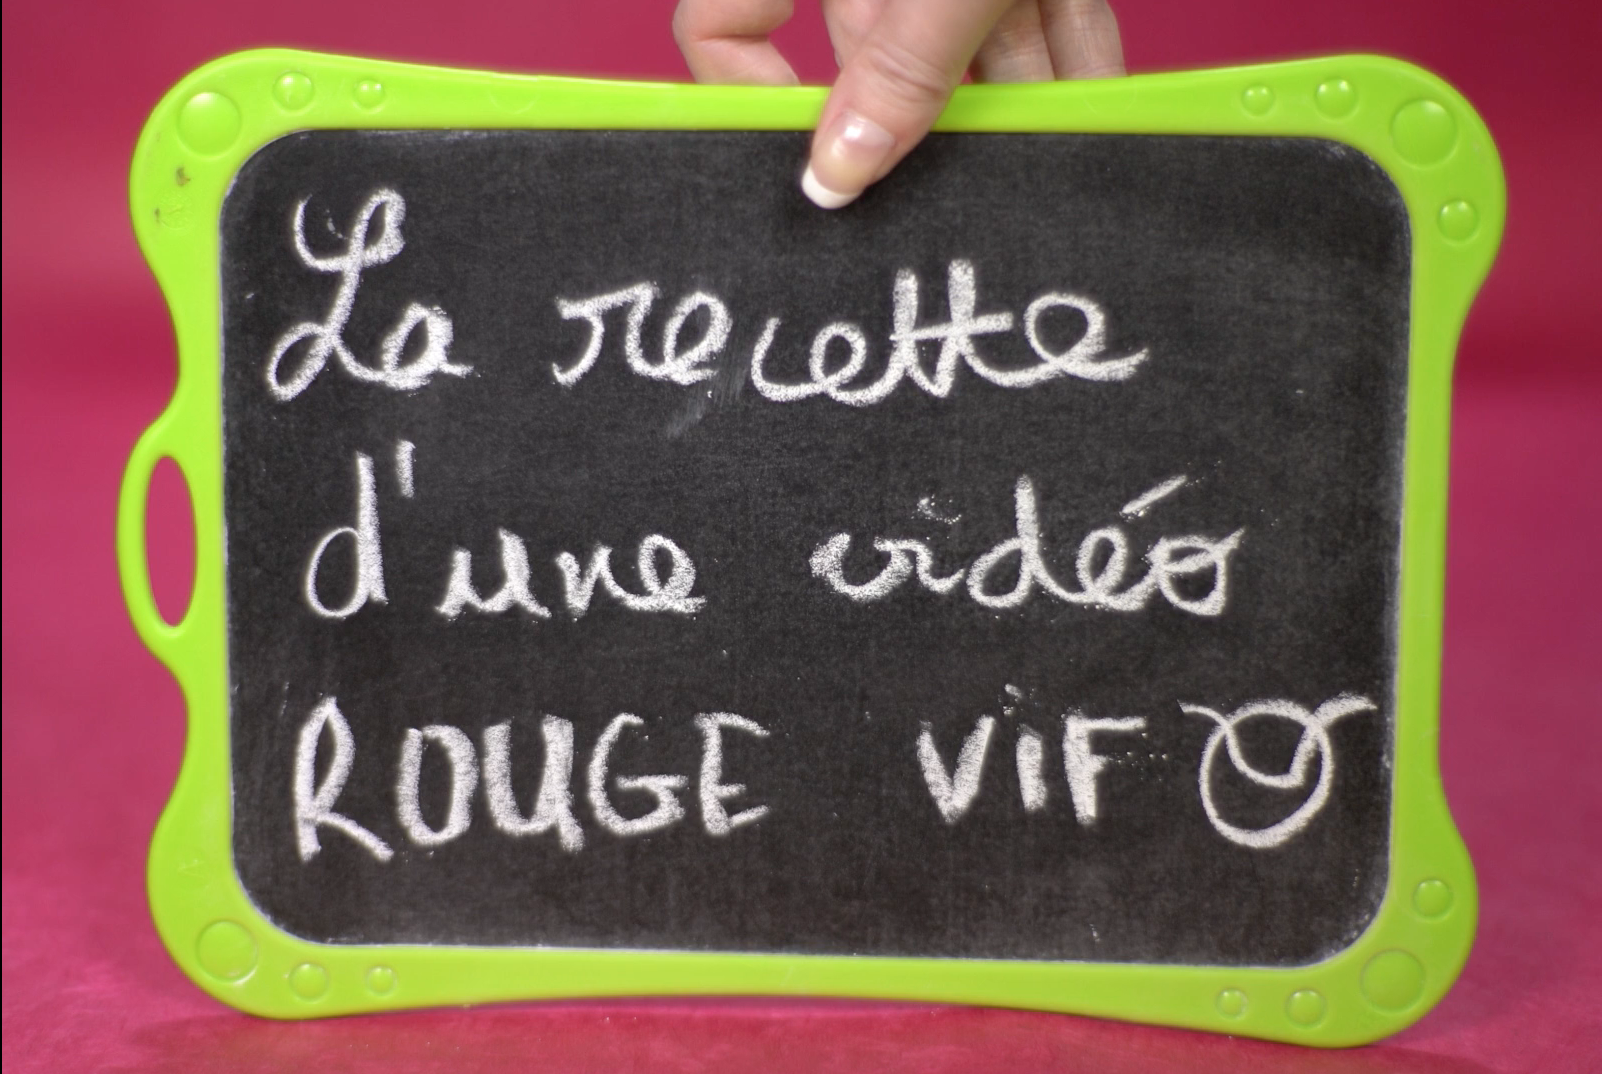 La recette
d'une vidéo
ROUGE ViF